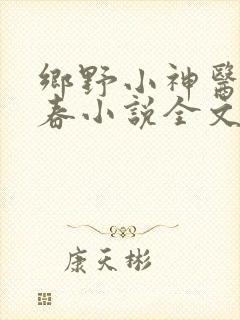 鄉野小神醫
春小說全文
康天彬